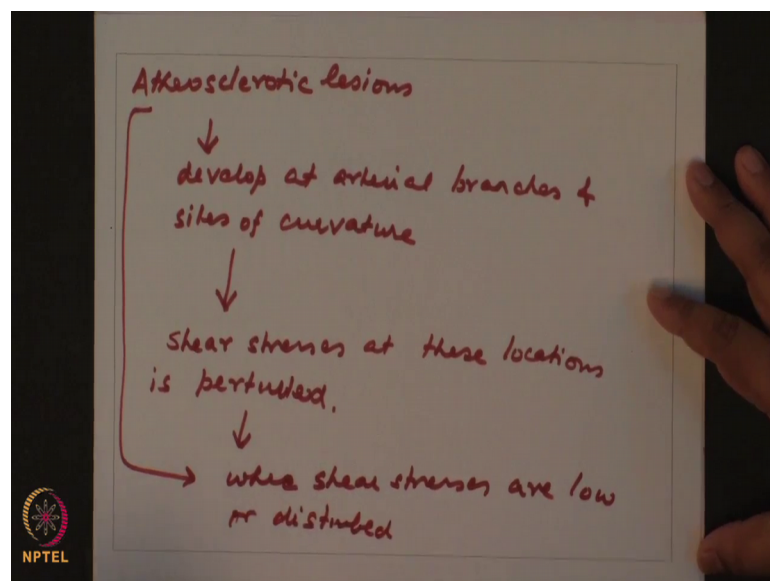 Atherosclerotic lesions
↓
develop at arterial branches &
sites of curvature
↓
shear stresses at these locations
is perturbed.
↓
where shear stresses are low
or disturbed
NPTEL